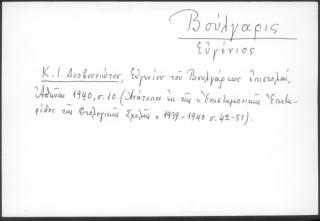 Βούλγαρις
Εὐγένιος
Κ. Ι. Δυοβουνιώτου, Εὐγενίου τοῦ Βουλγάρεως ἐπιστολαί,
Ἀθῆναι 1940, σ. 10. (Ἀνάτυπον ἐκ τῆς « Ἐπιστημονικῆς Ἐπετη-
ρίδος τῆς Θεολογικῆς Σχολῆς » 1939-1940 σ. 42-51).